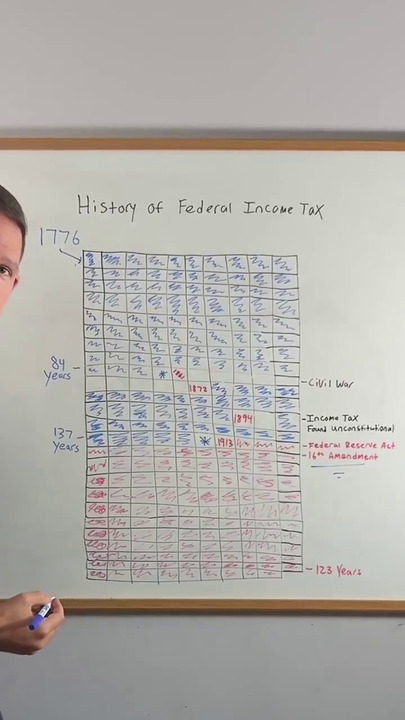 History of Federal Income Tax
1776
84
Years
*
1872
Civil War
1894
Income Tax
Found Unconstitutional
137
Years
*
1913
Federal Reserve Act
16th Amendment
123 Years